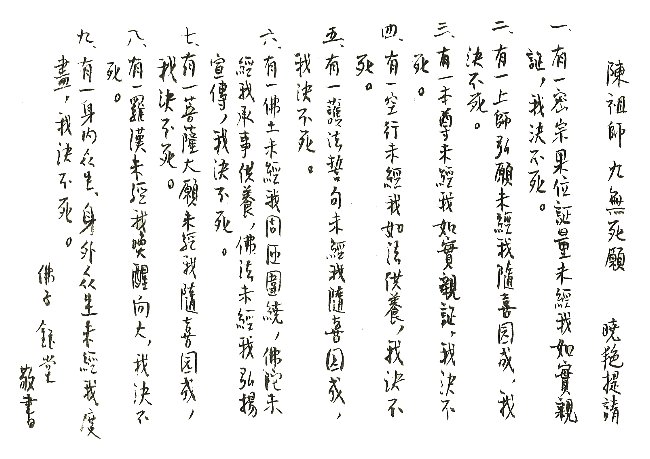 陳祖師九無死願 曉艳提請
一、有一密宗果位証量未經我如實親
証，我決不死。
二、有一上師弘願未經我隨喜圆成，我
決不死。
三、有一本尊未經我如實親証，我決不
死。
四、有一空行未經我如法供養，我決不
死。
五、有一護法誓句未經我隨喜圆成，
我決不死。
六、有一佛土未經我周匝圍繞，佛陀未
經我承事供養，佛法未經我弘揚
宣傳，我決不死。
七、有一菩薩大願未經我隨喜圆成，
我決不死。
八、有一羅漢未經我喚醒向大，我決不
死。
九、有一身内众生、身外众生未經我度
盡，我決不死。
佛子 鈺堂
敬書